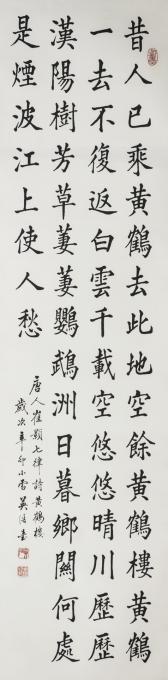 昔人已乘黃鶴去此地空餘黃鶴樓黃鶴
一去不復返白雲千載空悠悠晴川歷歷
漢陽樹芳草萋萋鸚鵡洲日暮鄉關何處
是煙波江上使人愁
唐人崔顥七律詩黃鶴樓
歲次辛卯小雪